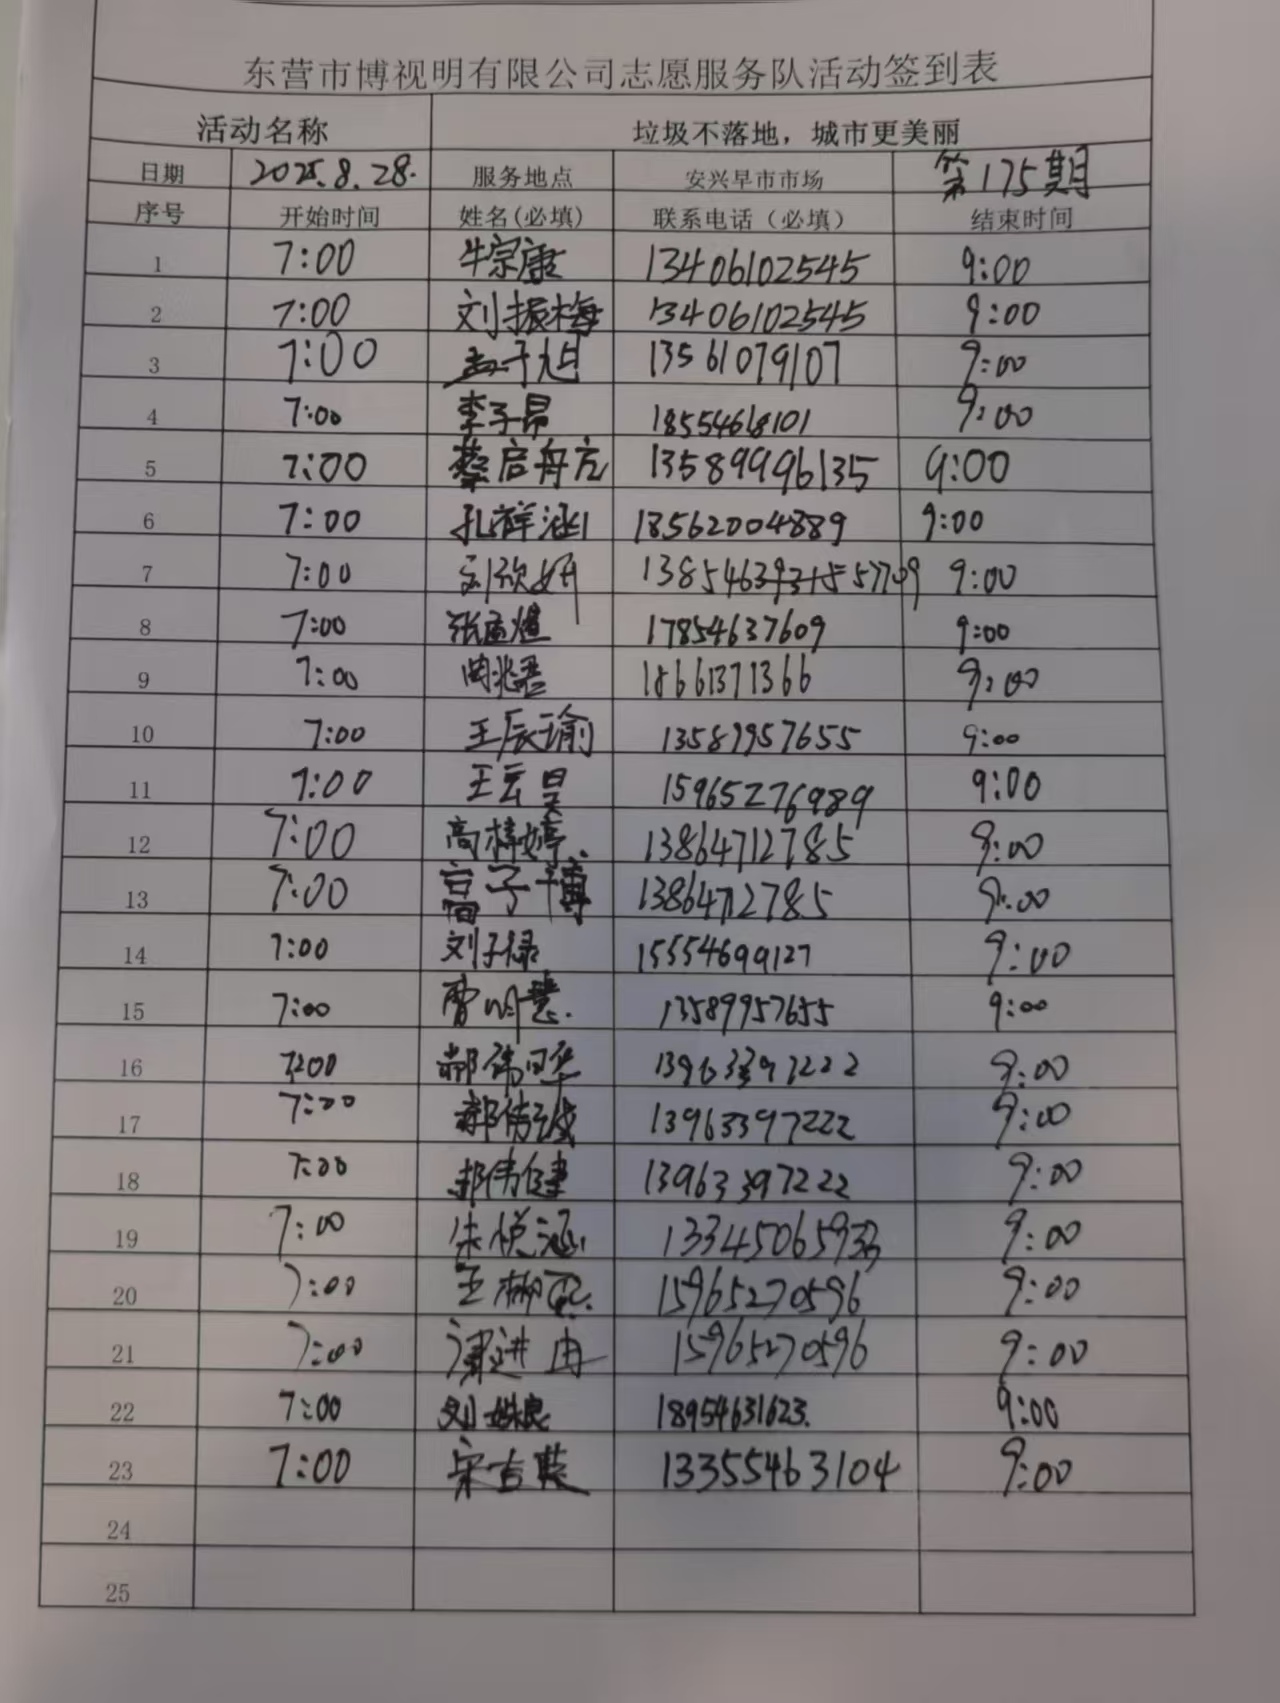 东营市博视明有限公司志愿服务队活动签到表
活动名称 垃圾不落地，城市更美丽
日期 2025.8.28. 服务地点 安兴早市市场 第175期
序号 开始时间 姓名(必填) 联系电话（必填） 结束时间
1 7:00 牛宗康 13406102545 9:00
2 7:00 刘振梅 13406102545 9:00
3 7:00 孟子旭 13561079107 9:00
4 7:00 李子昂 18554618101 9:00
5 7:00 蔡启舟 13589996135 9:00
6 7:00 孔祥涵 18562004889 9:00
7 7:00 刘欣妍 9:00
8 7:00 张孟煊 17854637609 9:00
9 7:00 18661371366 9:00
10 7:00 王辰瑜 13589957655 9:00
11 7:00 王云昊 15965276989 9:00
12 7:00 高梓婷 13864712785 9:00
13 7:00 高子博 13864712785 9:00
14 7:00 刘子禄 15554699127 9:00
15 7:00 曹明慧 13589957655 9:00
16 7:00 郝伟华 13963397222 9:00
17 7:00 郝伟 13963397222 9:00
18 7:00 郝伟健 13963397222 9:00
19 7:00 朱悦涵 9:00
20 7:00 王 15965270596 9:00
21 7:00 进 15965270596 9:00
22 7:00 刘姝良 18954631623. 9:00
23 7:00 宋吉 13355463104 9:00
24
25